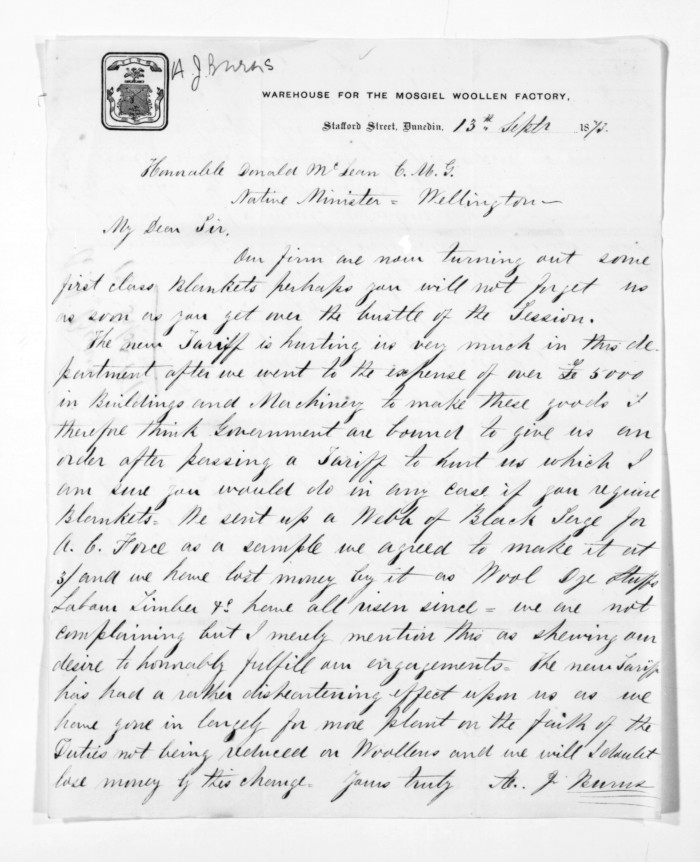 A J Burns
WAREHOUSE FOR THE MOSGIEL WOOLLEN FACTORY,
Stafford Street, Dunedin, 13th Septr 1873.
Honorable Donald McLean C.M.G.
Native Minister = Wellington
My Dear Sir,
Our firm are now turning out some
first class Blankets perhaps you will not forget us
as soon as you get over the bustle of the Session.
The new Tariff is hurting us very much in this de-
partment after we went to the expense of over £5000
in Buildings and Machinery to make these goods I
therefore think Government are bound to give us an
order after passing a Tariff to hurt us which I
am sure you would do in any case if you require
Blankets = We sent up a Webb of Black Serge for
A. C. Force as a sample we agreed to make it at
3/ and we have lost money by it as Wool Dye Stuffs
Labour Timber &c have all risen since = we are not
complaining but I merely mention this as shewing our
desire to honorably fulfill our engagements = The new Tariff
has had a rather disheartening effect upon us as we
have gone in largely for more plant on the faith of the
Duties not being reduced on Woollens and we will I doubt
lose money by this change = Yours truly A. J Burns